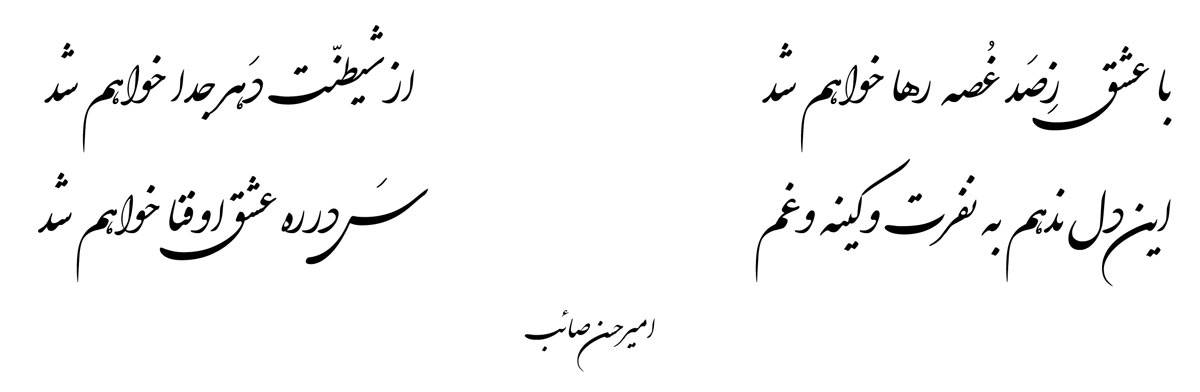 با عشق زِصَد غُصه رها خواهم شد
از شیطنّت دَهر جدا خواهم شد
این دل ندهم به نفرت و کینه و غم
سَر در ره عشق او فنا خواهم شد
امیرحسن صائب